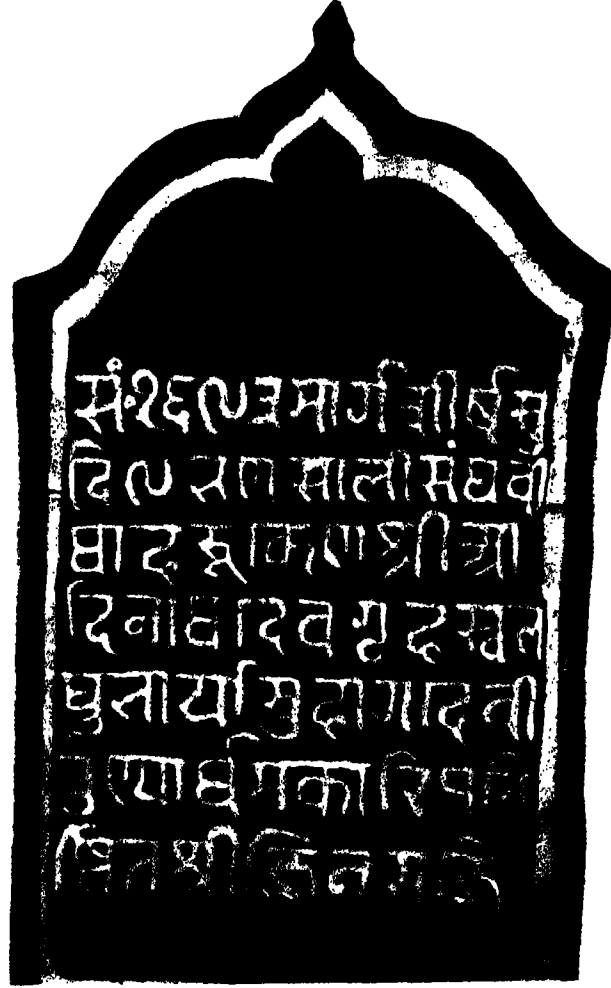 सं॰१६९३ मार्गशीर्ष सु
दि ९ भणसाली संघवी
थाहरूकेण श्री आ
दिनाथदेवगृहं स्वल
घुभार्यासुहागदेवी
पुण्यार्थमकारि प्रति
ष्ठितं श्रीजिन